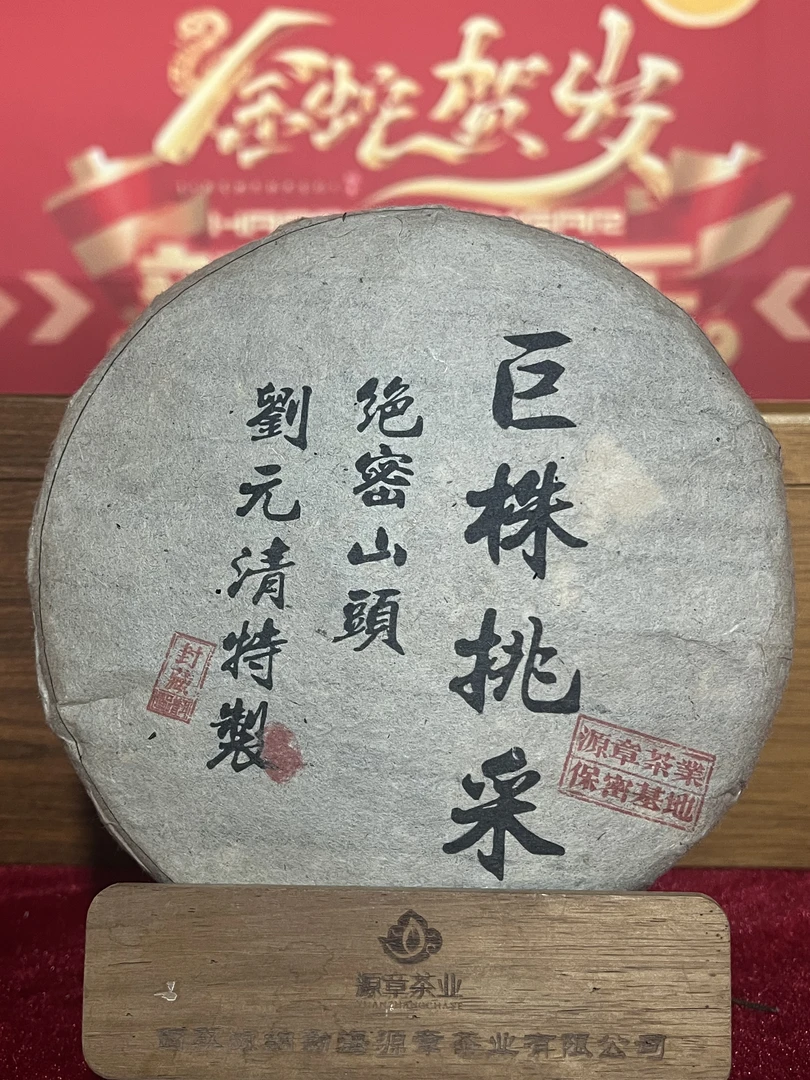 金蛇贺岁
巨株挑采
绝密山頭
劉元清特製
封藏
源章茶業
保密基地
源章茶业
源章茶业有限公司